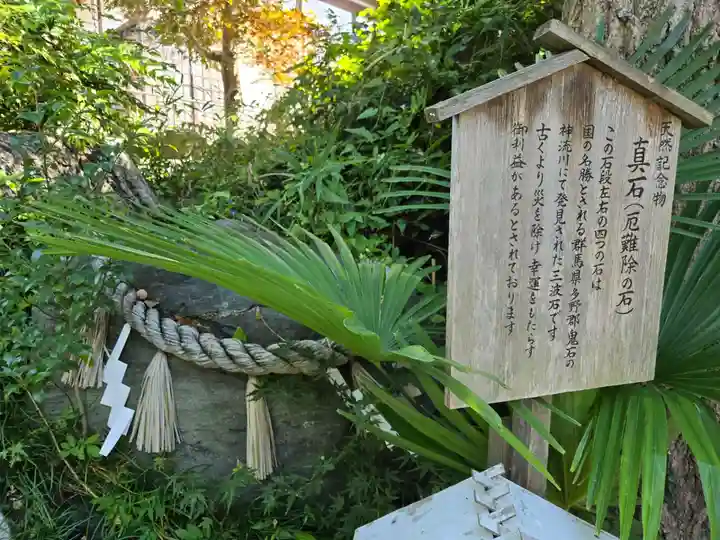 天然記念物
真石（厄難除の石）
この石段左右の四つの石は
国の名勝とされる群馬県多野郡鬼石の
神流川にて発見された三波石です
古くより災を除け幸運をもたらす
御利益があるとされております